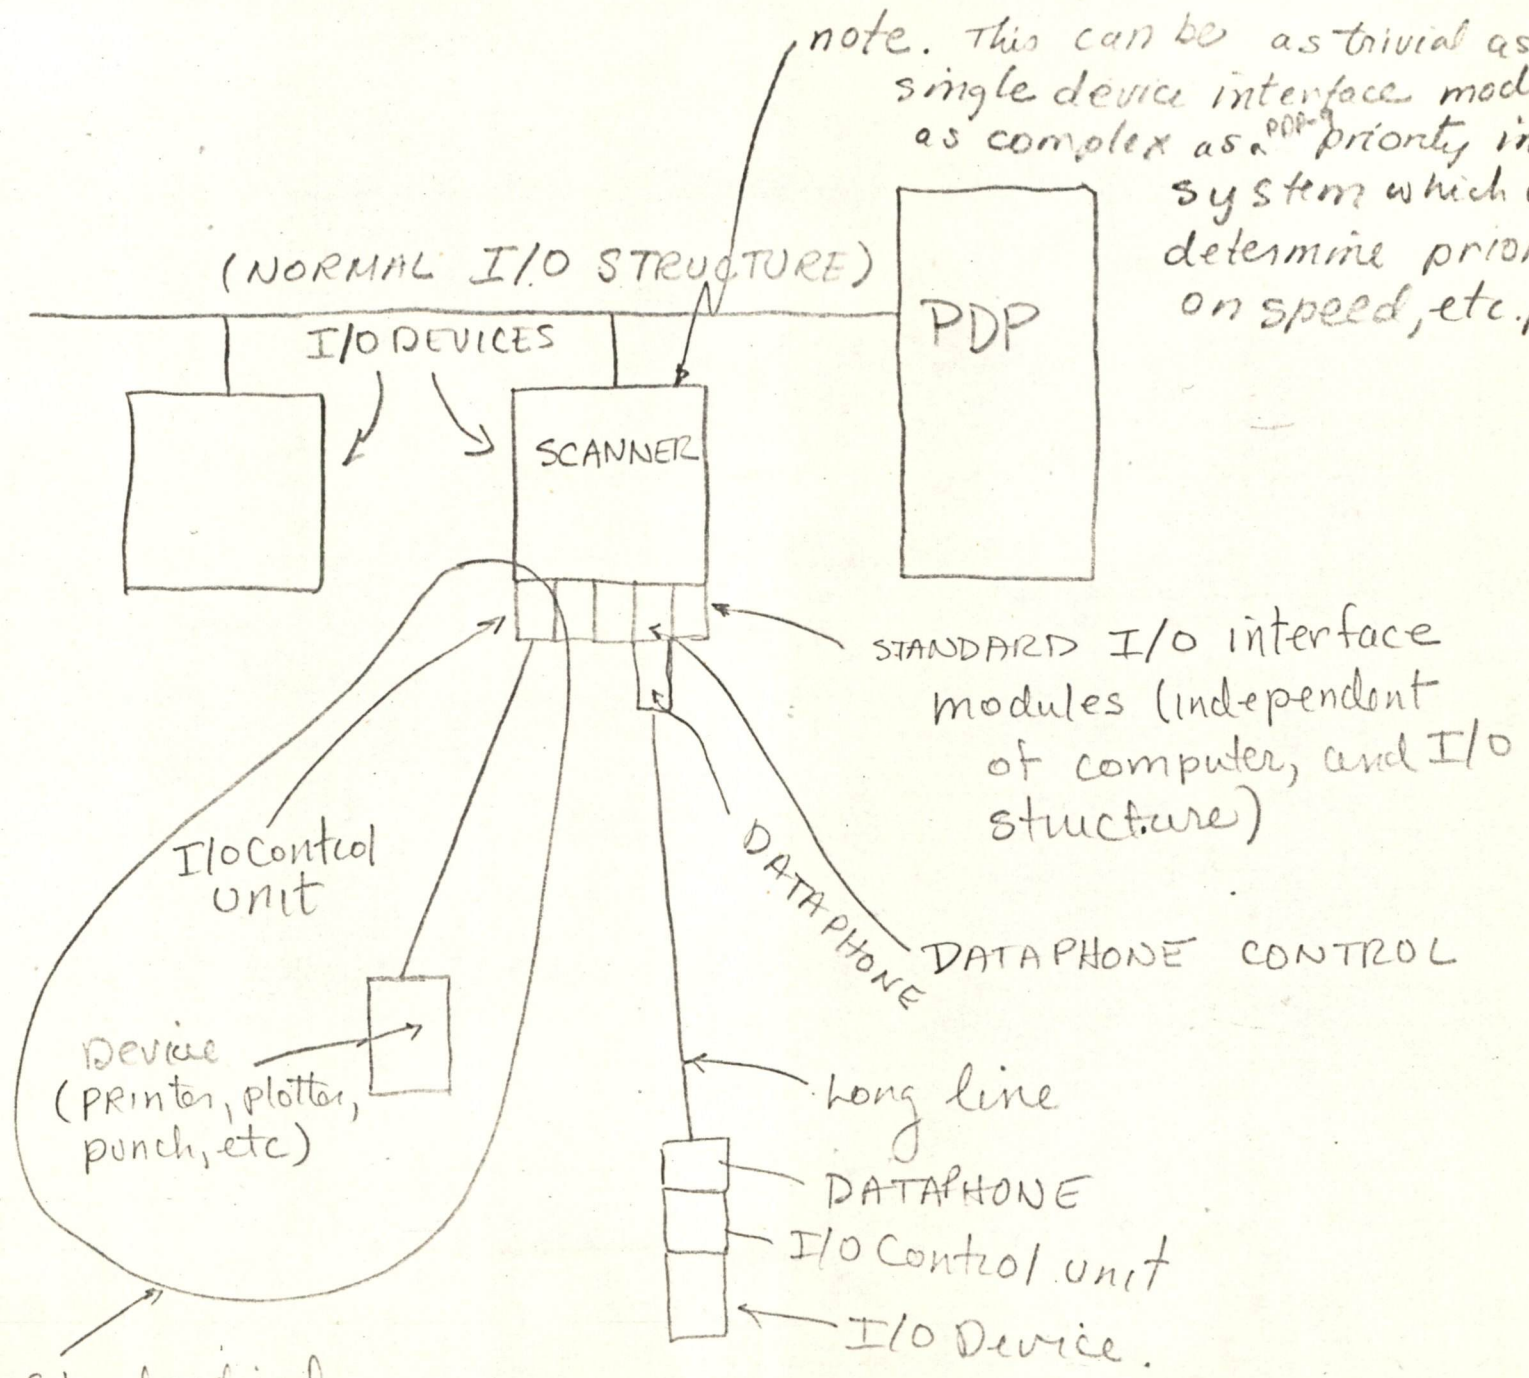 note. This can be as trivial as
single device interface mod
as complex as a PDP-9 priority in
system which
determine prior
on speed, etc.
(NORMAL I/O STRUCTURE)
PDP
I/O DEVICES
SCANNER
STANDARD I/O interface
modules (independent
of computer, and I/O
structure)
I/O Control
unit
DATAPHONE
DATAPHONE CONTROL
Device
(printer, plotter,
punch, etc)
Long line
DATAPHONE
I/O Control unit
I/O Device.